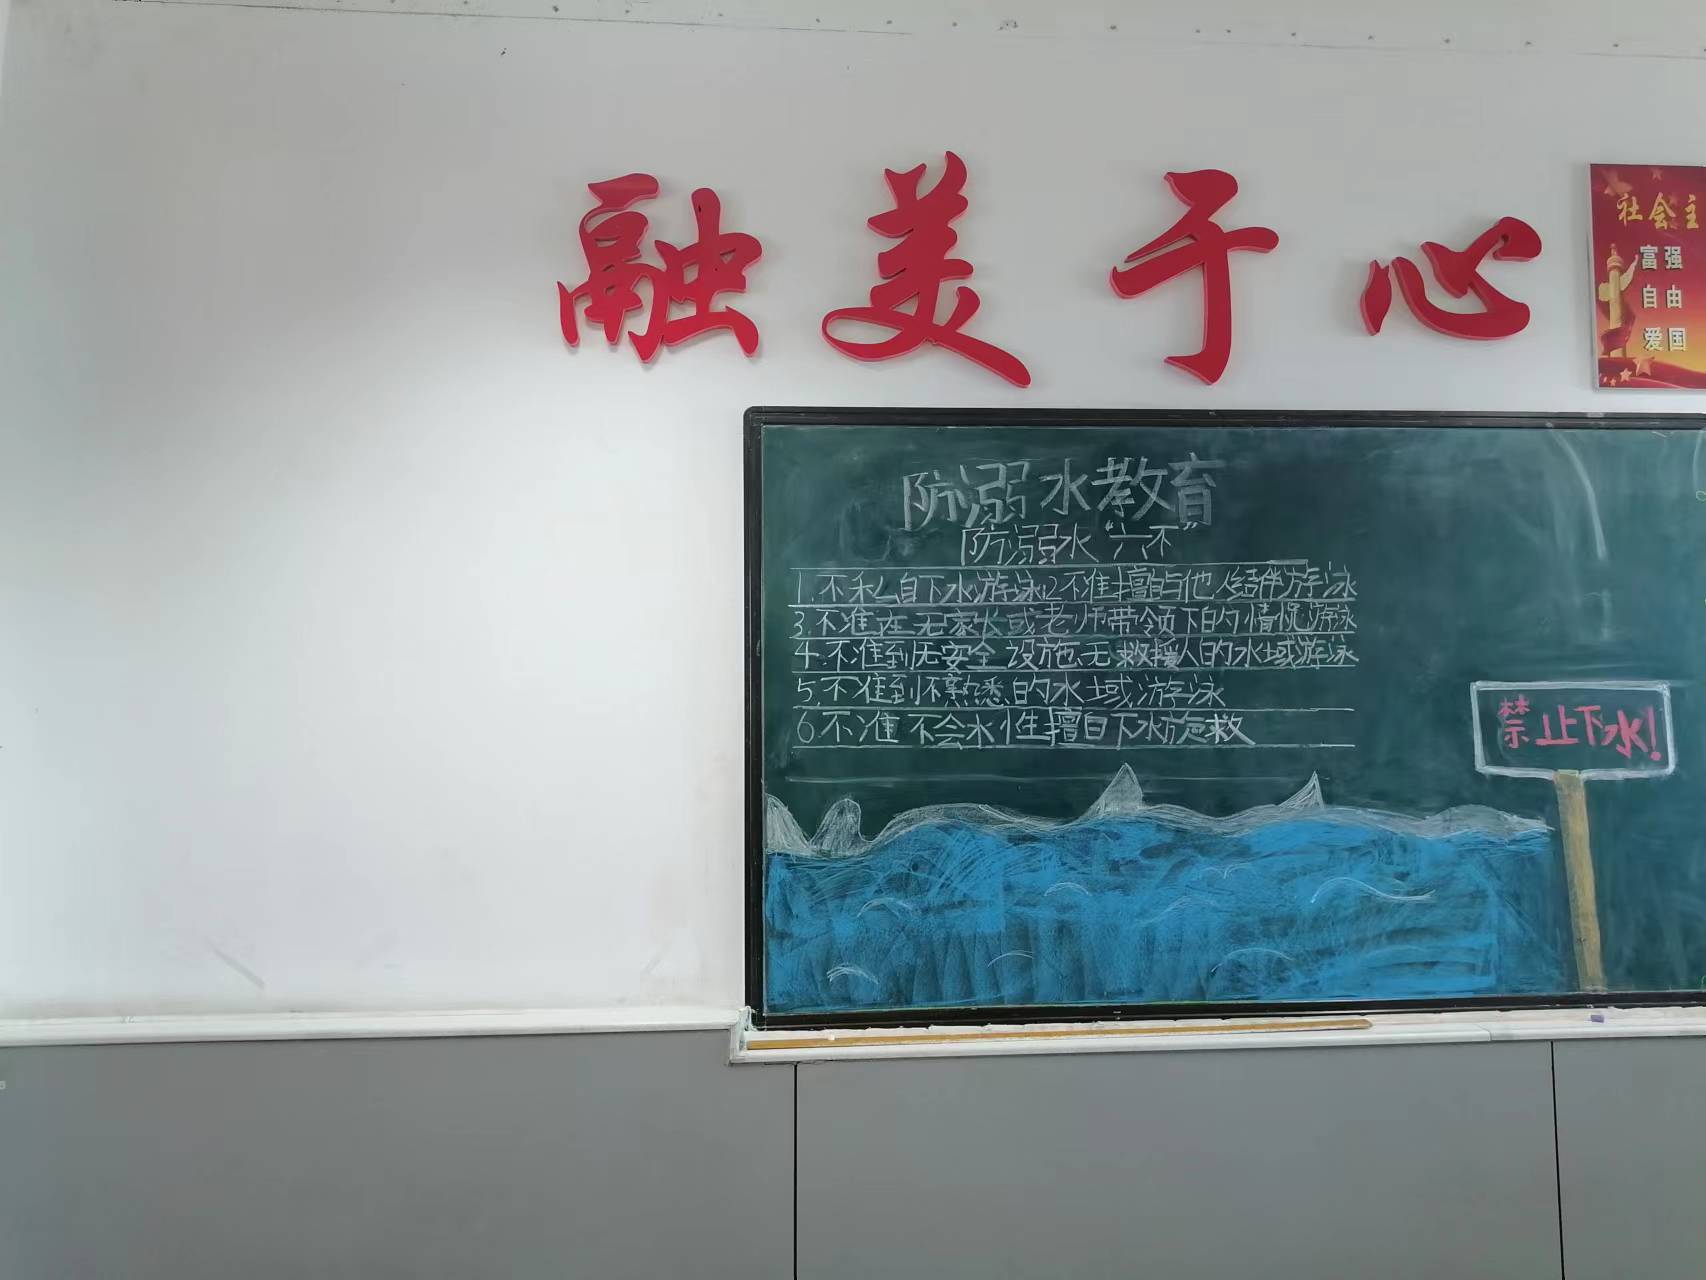 融美于心
社会主
富强
自由
爱国
防溺水教育
防溺水“六不”
1.不私自下水游泳2.不准擅自与他人结伴游泳
3.不准在无家长或老师带领下的情况游泳
4.不准到无安全设施、无救援人的水域游泳
5.不准到不熟悉的水域游泳
6.不准不会水性擅自下水施救
禁止下水!